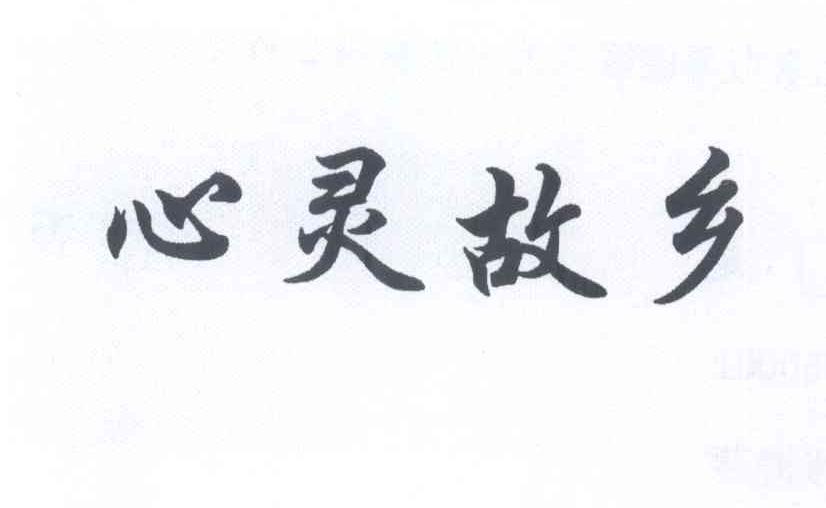 心灵故乡